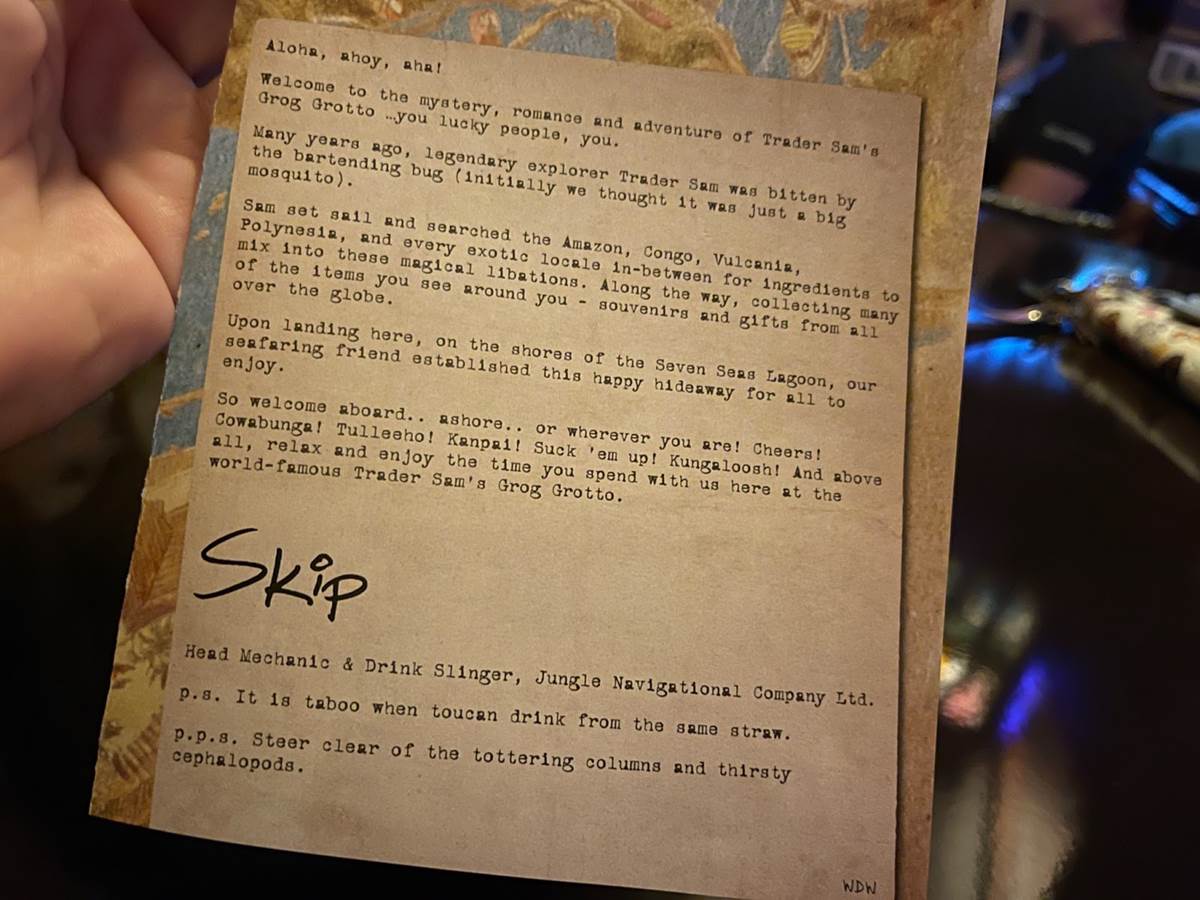 Aloha, ahoy, aha!
Welcome to the mystery, romance and adventure of Trader Sam's
Grog Grotto …you lucky people, you.
Many years ago, legendary explorer Trader Sam was bitten by
the bartending bug (initially we thought it was just a big
mosquito).
Sam set sail and searched the Amazon, Congo, Vulcania,
Polynesia, and every exotic locale in-between for ingredients to
mix into these magical libations. Along the way, collecting many
of the items you see around you - souvenirs and gifts from all
over the globe.
Upon landing here, on the shores of the Seven Seas Lagoon, our
seafaring friend established this happy hideaway for all to
enjoy.
So welcome aboard.. ashore.. or wherever you are! Cheers!
Cowabunga! Tulleeho! Kanpai! Suck 'em up! Kungaloosh! And above
all, relax and enjoy the time you spend with us here at the
world-famous Trader Sam's Grog Grotto.
Skip
Head Mechanic & Drink Slinger, Jungle Navigational Company Ltd.
p.s. It is taboo when toucan drink from the same straw.
p.p.s. Steer clear of the tottering columns and thirsty
cephalopods.
WDW